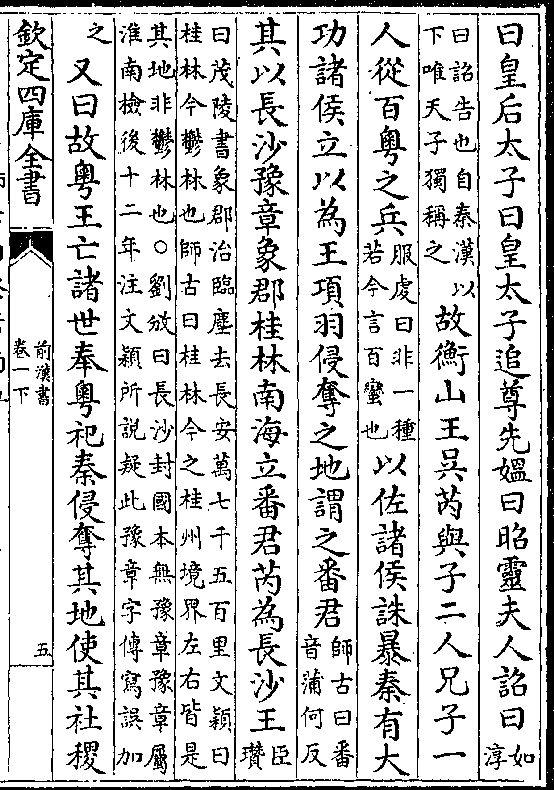 曰皇后太子曰皇太子追尊先媼曰昭靈夫人詔曰如淳
曰詔告也自秦漢以下唯天子獨稱之故衡山王吳芮與子二人兄子一
人從百粵之兵服虔曰非一種若今言百蠻也以佐諸侯誅暴秦有大
功諸侯立以為王項羽侵奪之地謂之番君師古曰番音蒲何反
其以長沙豫章象郡桂林南海立番君芮為長沙王臣瓚
曰茂陵書象郡治臨塵去長安萬七千五百里文穎曰
桂林今鬱林也師古曰桂林今之桂州境界左右皆是
其地非鬱林也○劉攽曰長沙封國本無豫章豫章屬
淮南檢後十二年注文穎所說疑此豫章字傳寫誤加
之又曰故粵王亡諸世奉粵祀秦侵奪其地使其社稷
欽定四庫全書
前漢書
卷一下
五